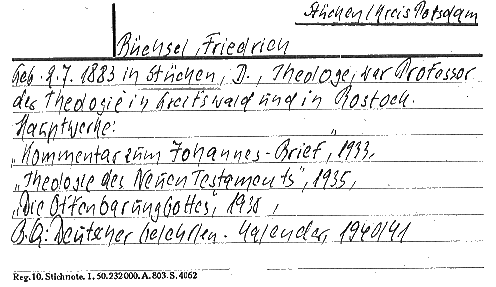 Stücken/Kreis Potsdam
Büchsel, Friedrich
Geb. 2.7. 1883 in Stücken, D., Theologe, war Professor
der Theologie in Greifswald und in Rostock.
Hauptwerke:
„Kommentar zum Johannes-Brief", 1933,
„Theologie des Neuen Testaments", 1935,
„Die Offenbarung Gottes", 1938,
B.Q.: Deutscher Gelehrten-Kalender, 1940/41
Reg. 10. Stichnote. 1. 50. 232000. A. 803. S. 4062